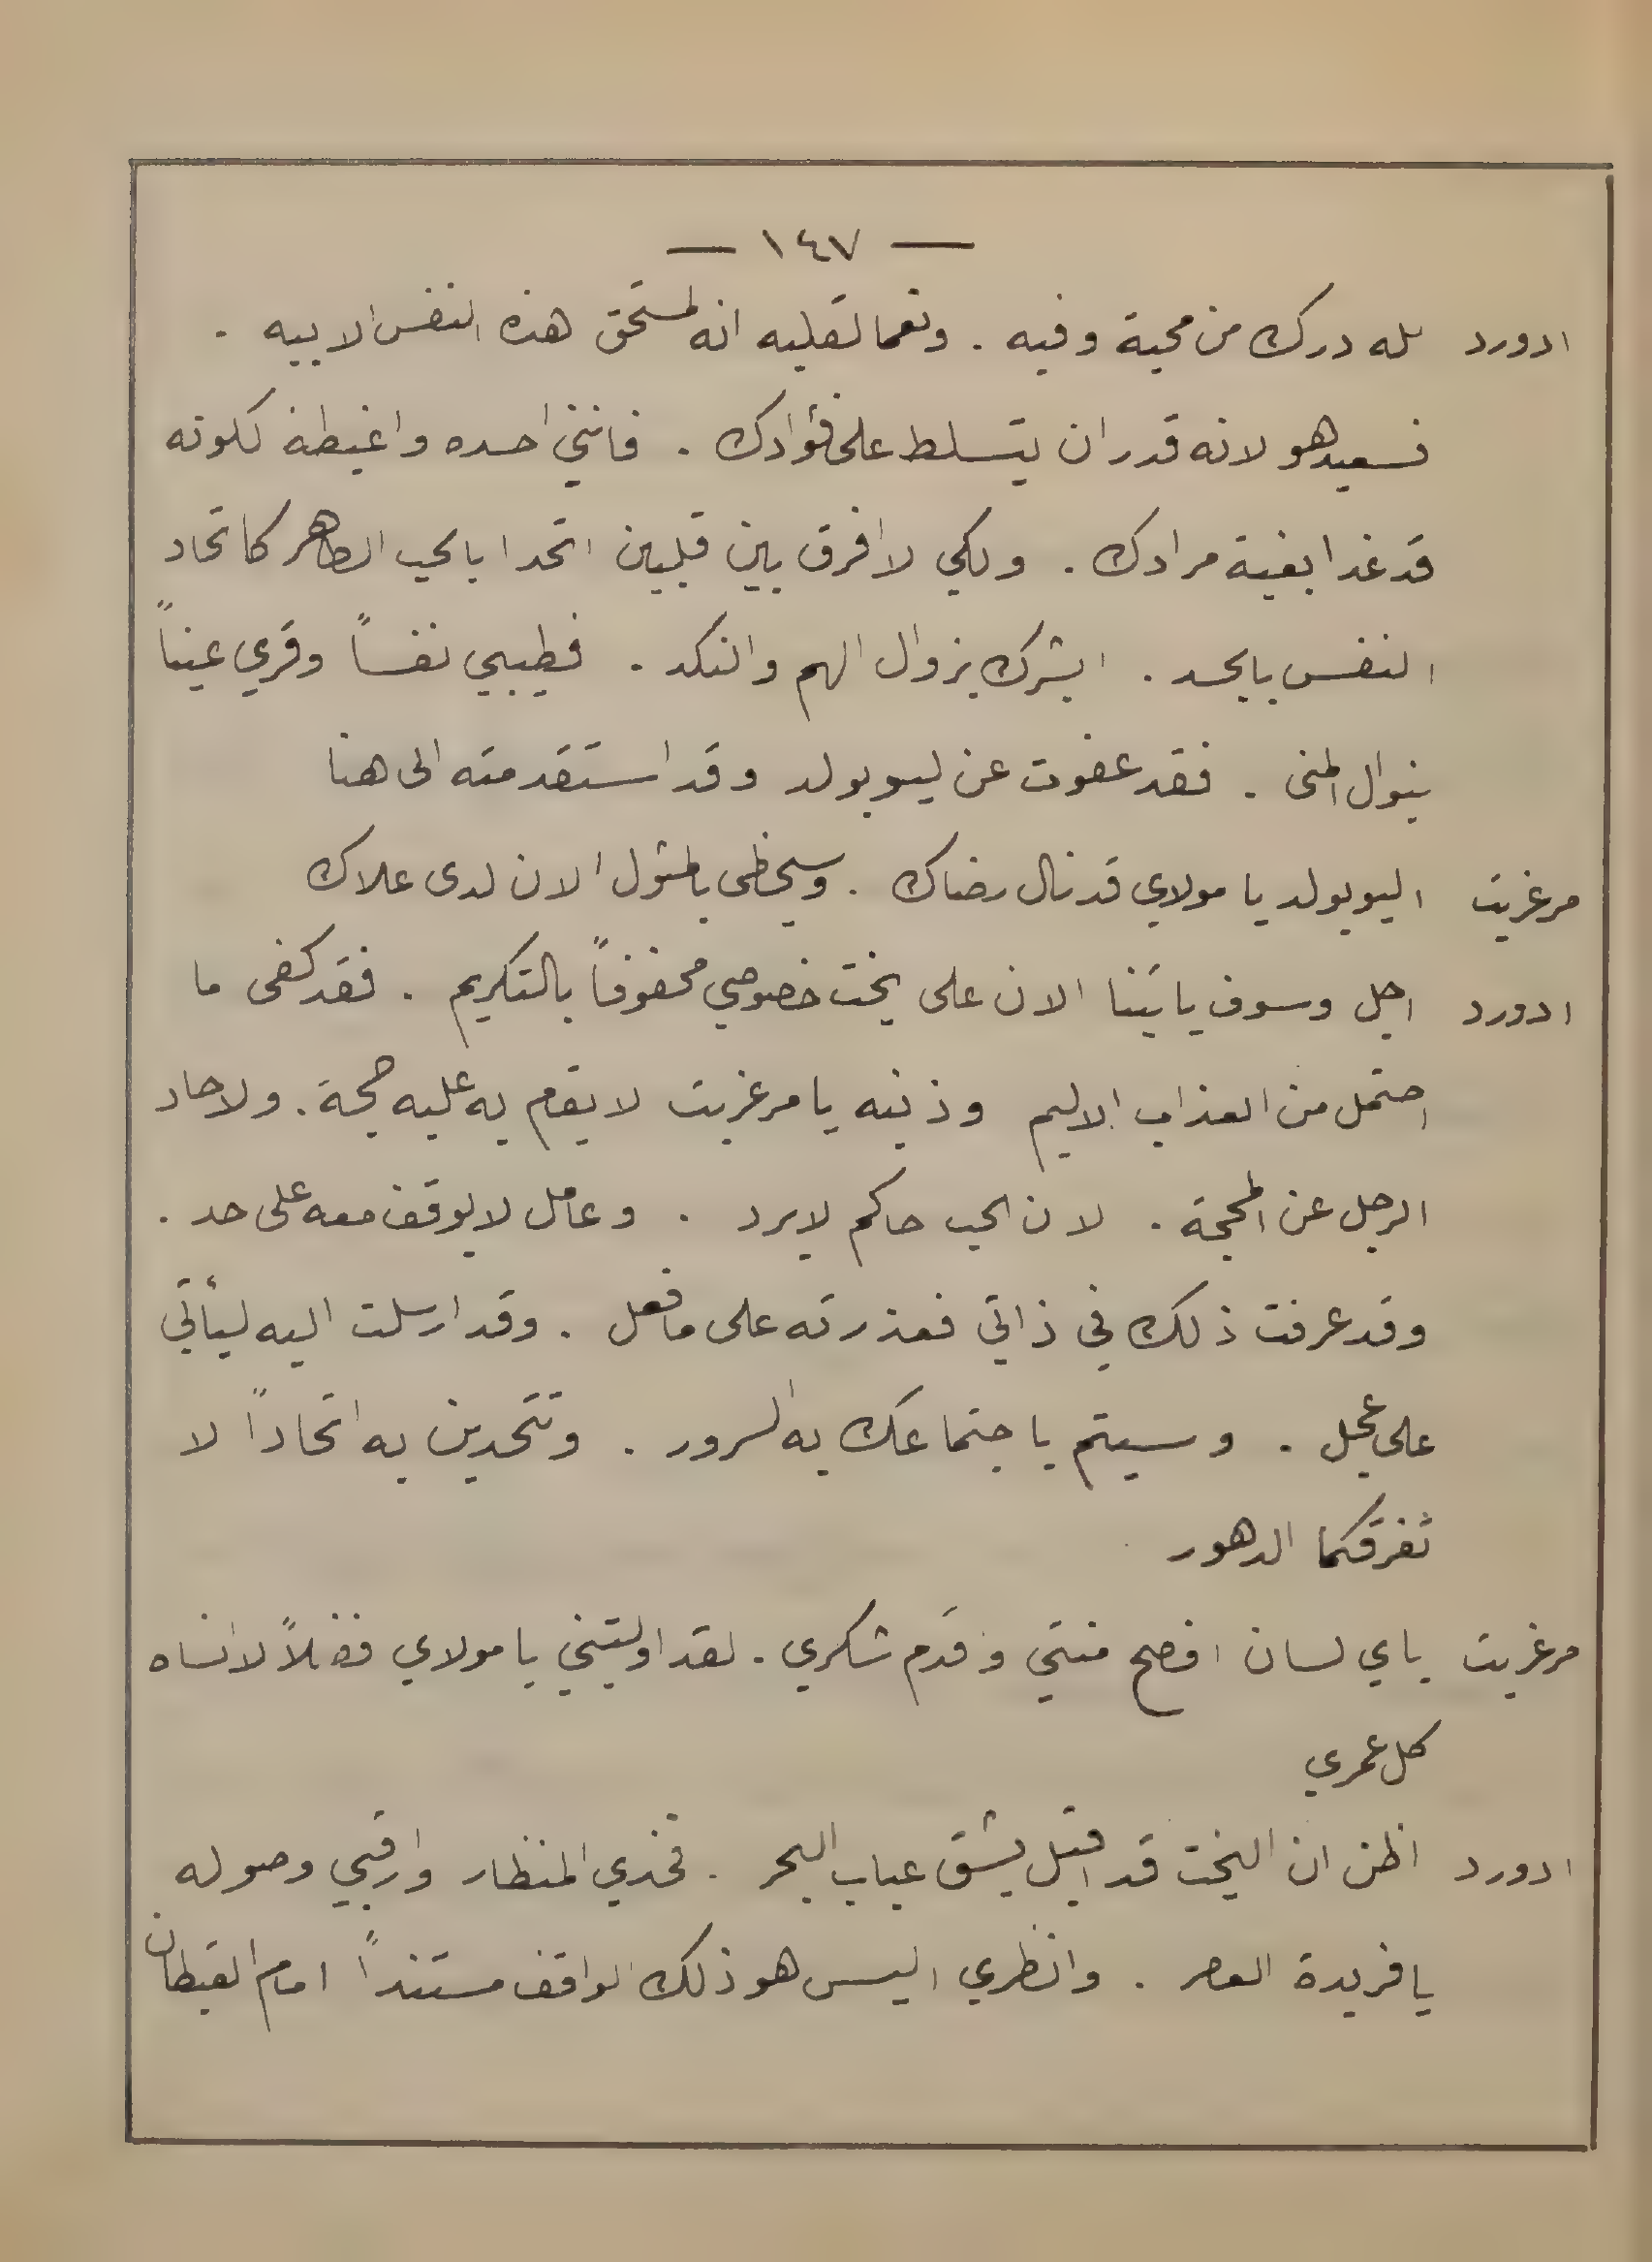 — ١٤٧ —
ادورد لله درك من محبة وفيه . ونعما لقلبه انه لمستحق هذه النفس الابيه .
فسعيد هو لانه قدر ان يتسلط على فؤادك . فانني احسده واغبطه لكونه
قد غدا بغية مرادك . ولكي لا افرق بين قلبين اتحدا بالحب الطاهر كاتحاد
النفس بالجسد . ابشرك بزوال الهم والنكد . فطيبي نفساً وقري عيناً
بنوال المنى . فقد عفوت عن ليوبولد وقد استقدمته الى هنا
مرغريت اليوبولد يا مولاي قد نال رضاك . وسيحظى بالمثول الان لدى علاك
ادورد اجل وسوف يأتينا الان على يخت خصوصي محفوفاً بالتكريم . فقد كفى ما
احتمل من العذاب الاليم وذنبه يا مرغريت لا يقام به عليه حجة . ولا حاد
الرجل عن المحجة . لان الحب حاكم لا يرد . وعامل لا يوقف معه على حد .
وقد عرفت ذلك في ذاتي فعذرته على ما فعل . وقد ارسلت اليه ليأتي
على عجل . وسيتم باجتماعك به السرور . وتتحدين به اتحاداً لا
تفرقكما الدهور
مرغريت باي لسان افصح منتي وقدم شكري . لقد اوليتني يا مولاي فضلاً لا انساه
كل عمري
ادورد اظن ان اليخت قد اقبل يشق عباب البحر . فخذي المنظار وارقبي وصوله
يا فريدة العصر . وانظري اليس هو ذلك الواقف مستنداً امام القبطان